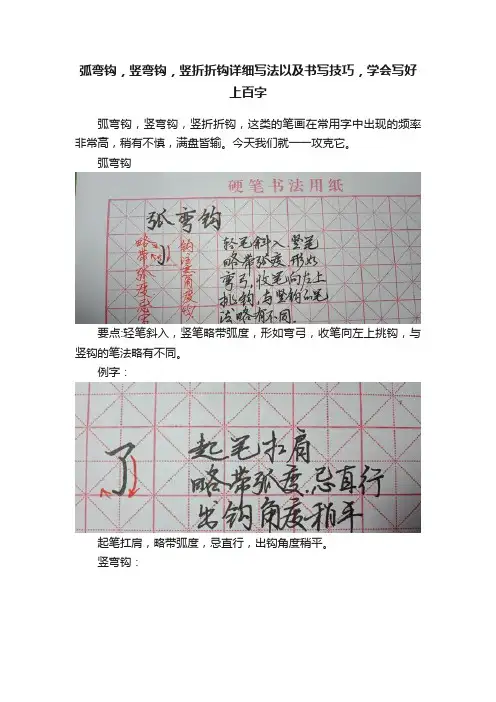 弧弯钩，竖弯钩，竖折折钩详细写法以及书写技巧，学会写好
上百字
弧弯钩，竖弯钩，竖折折钩，这类的笔画在常用字中出现的频率
非常高，稍有不慎，满盘皆输。今天我们就一一攻克它。
弧弯钩
硬笔书法用纸
弧弯钩
略带弧度忌直
钩注意角度
轻笔斜入竖笔
略带弧度,形如
弯弓,收笔向左上
挑钩,与竖钩的笔
法略有不同.
要点:轻笔斜入，竖笔略带弧度，形如弯弓，收笔向左上挑钩，与
竖钩的笔法略有不同。
例字：
了
起笔扛肩
略带弧度.忌直行
出钩角度稍平
起笔扛肩，略带弧度，忌直行，出钩角度稍平。
竖弯钩：